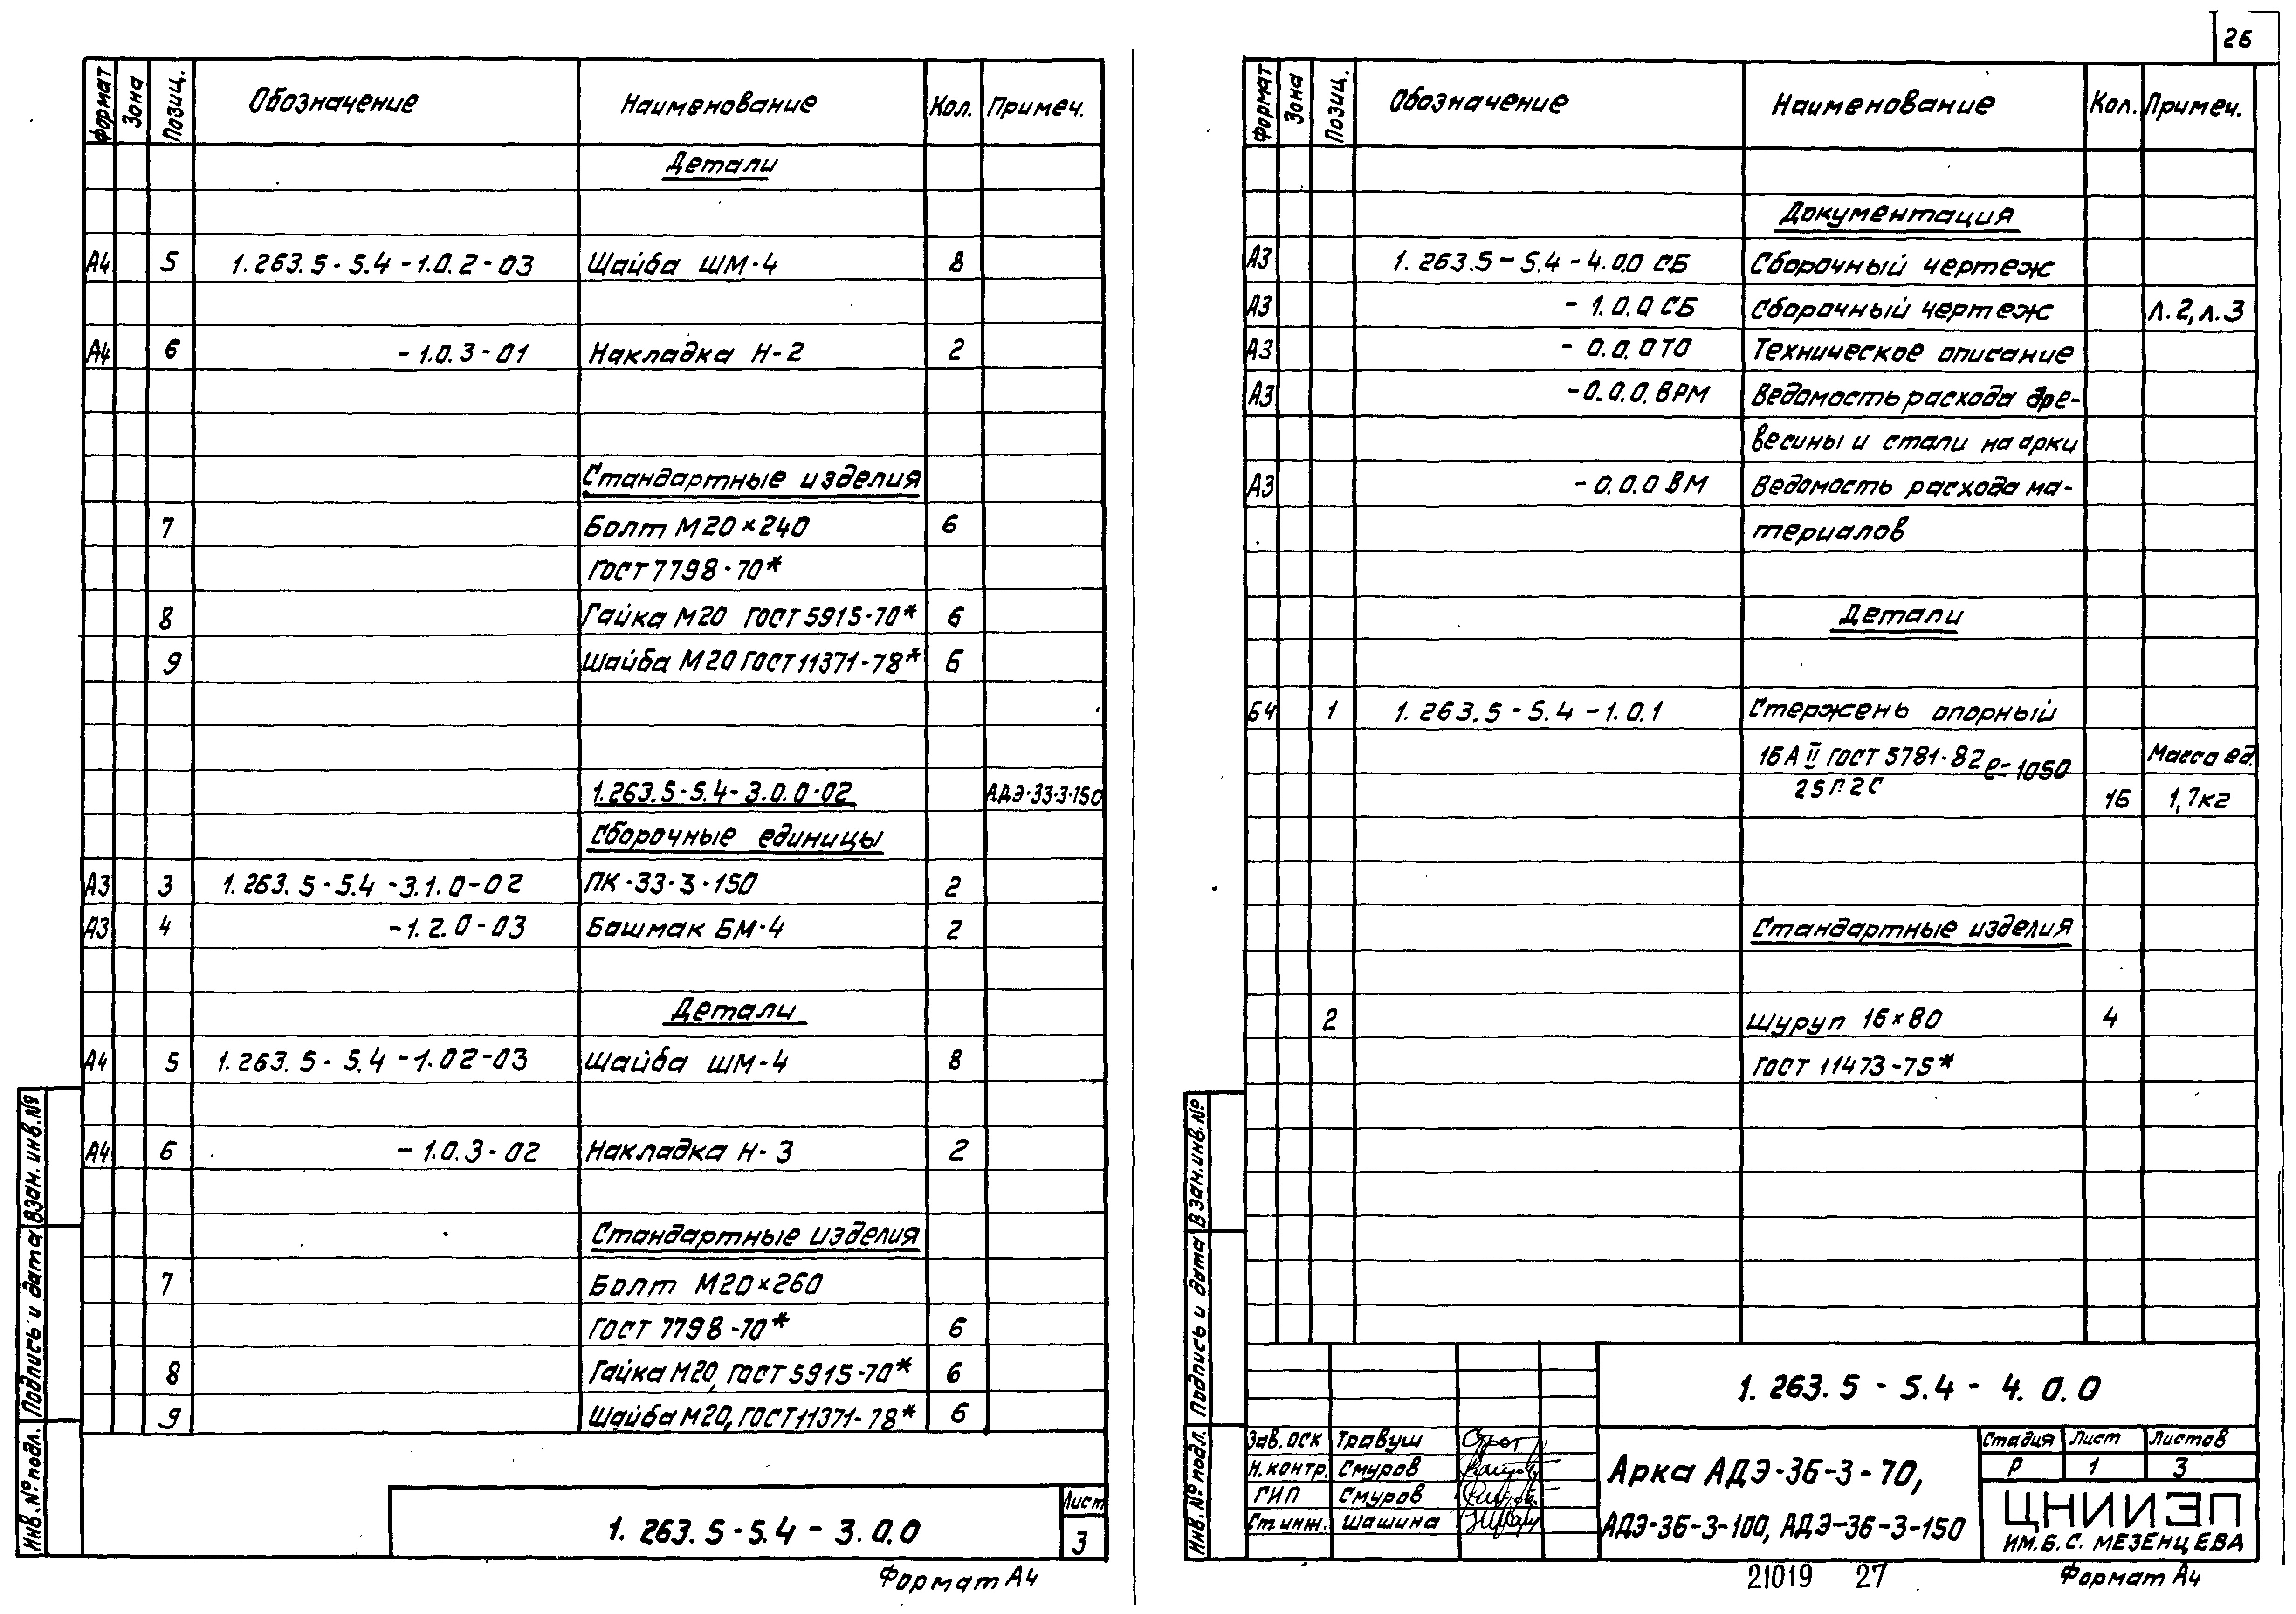 Формат Зона Позиц. Обозначение Наименование Кол. Примеч.
Детали
А4 5 1.263.5-5.4-1.0.2-03 Шайба ШМ-4 8
А4 6 -1.0.3-01 Накладка Н-2 2
Стандартные изделия
7 Болт М20×240 6
ГОСТ 7798-70*
8 Гайка М20 ГОСТ 5915-70* 6
9 Шайба М20 ГОСТ 11371-78* 6
1.263.5-5.4-3.0.0-02 АДЭ-33-3-150
Сборочные единицы
А3 3 1.263.5-5.4-3.1.0-02 ПК-33-3-150 2
А3 4 -1.2.0-03 Башмак БМ-4 2
Детали
А4 5 1.263.5-5.4-1.02-03 Шайба ШМ-4 8
А4 6 -1.0.3-02 Накладка Н-3 2
Стандартные изделия
7 Болт М20×260
ГОСТ 7798-70* 6
8 Гайка М20, ГОСТ 5915-70* 6
9 Шайба М20, ГОСТ 11371-78* 6
Инв.№ подл. Подпись и дата Взам.инв.№
1.263.5-5.4-3.0.0
Лист
3
Формат А4
26
Формат Зона Позиц. Обозначение Наименование Кол. Примеч.
Документация
А3 1.263.5-5.4-4.0.0 СБ Сборочный чертеж
А3 -1.0.0 СБ Сборочный чертеж Л.2, л.3
А3 -0.0.0ТО Техническое описание
А3 -0.0.0.ВРМ Ведомость расхода дре-
весины и стали на арки
А3 -0.0.0 ВМ Ведомость расхода ма-
териалов
Детали
Б4 1 1.263.5-5.4-1.0.1 Стержень опорный
16 А II ГОСТ 5781-82 ℓ=1050 Масса ед.
25Г2С 16 1,7кг
Стандартные изделия
2 Шуруп 16×80 4
ГОСТ 11473-75*
Инв.№ подл. Подпись и дата Взам.инв.№
1.263.5-5.4-4.0.0
Зав.ОСК Травуш
Н.контр. Смуров
ГИП Смуров
Ст.инж. Шашина
Арка АДЭ-36-3-70,
АДЭ-36-3-100, АДЭ-36-3-150
Стадия Лист Листов
Р 1 3
ЦНИИЭП
ИМ.Б.С. МЕЗЕНЦЕВА
21019 27
Формат А4